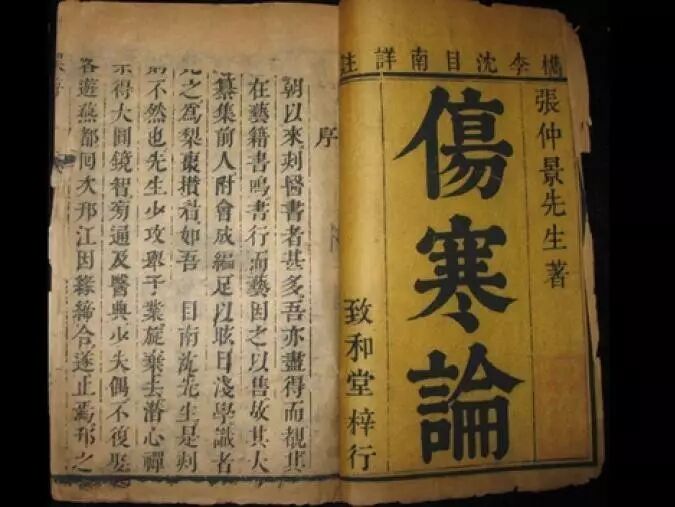 檇李沈目南詳註
張仲景先生著
傷寒論
致和堂梓行
序
朝以來刻醫書者甚多吾亦盡得而覩其
在藝籍書鳴書行而藝因之以售故其大
纂集前人附會成編足以眩目淺學識者
之為梨棗攢眉如吾 目南沈先生是刻
不然也先生少攻舉子業旋棄去潛心禪
宗得大圓鏡智旁通及醫典少失偶不復娶
客遊燕都同次邗江因緣締合遂止焉邗之